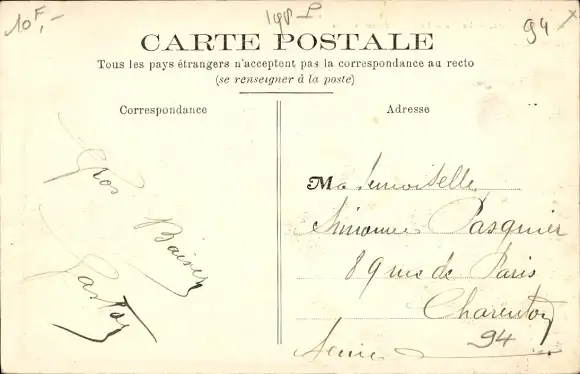 10F,-
94 x
CARTE POSTALE
Tous les pays étrangers n'acceptent pas la correspondance au recto
(se renseigner à la poste)
Correspondance
Gros
Baiser
Gaston
Adresse
Mademoiselle
Simonne Pasquier
89 rue de Paris
Charenton
94
Seine